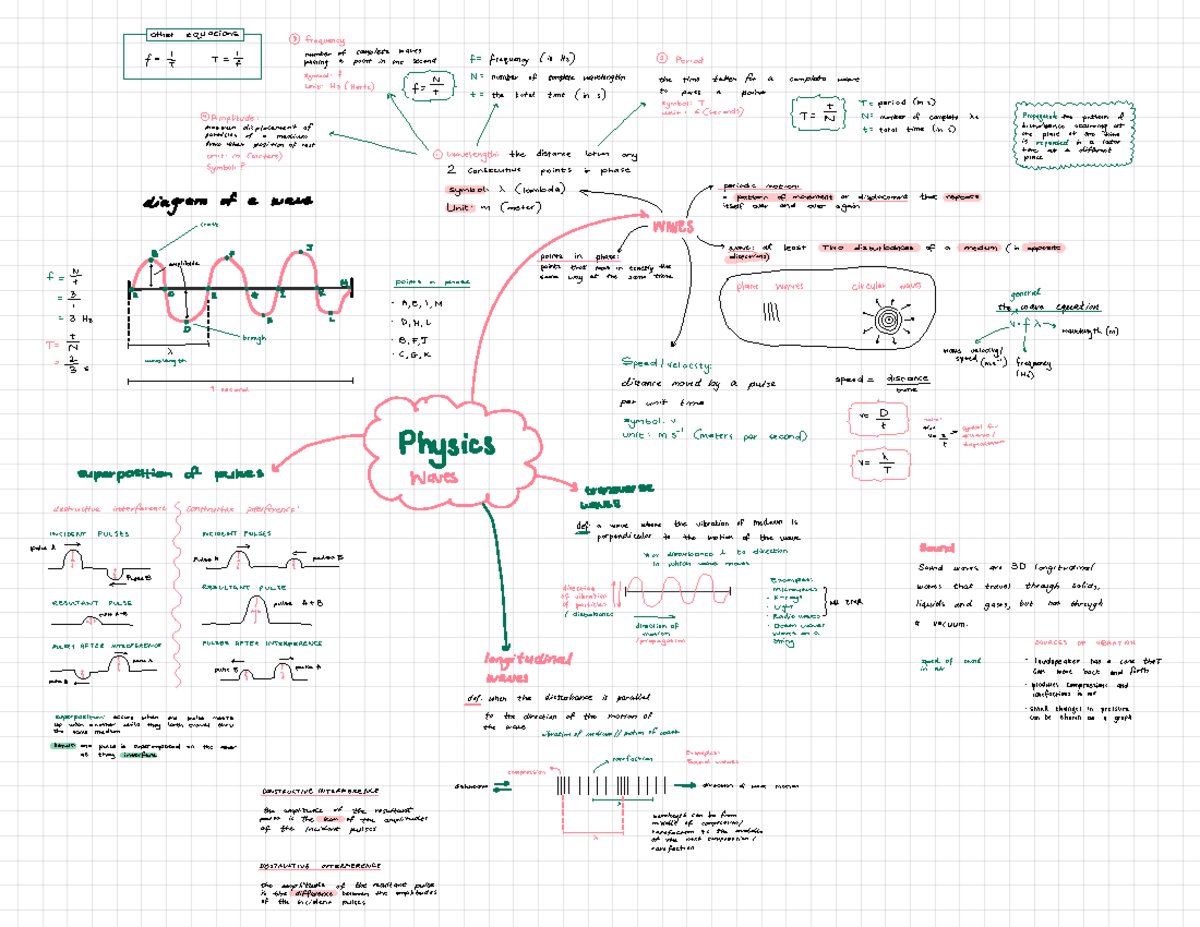 other equations
f = 1/T
T = 1/f
③ frequency
number of complete waves
passing a point in one second
symbol: f
unit: Hz (Hertz)
f = N/t
f = frequency (in Hz)
N = number of complete wavelengths
t = the total time (in s)
② Period
the time taken for a complete wave
to pass a point
symbol: T
unit: s (seconds)
T = t/N
T = period (in s)
N = number of complete λs
t = total time (in s)
Propagate: the pattern of
disturbance occurring at
one place at one time
is repeated at a later
time at a different
place
④ Amplitude:
maximum displacement of
particles of a medium
from their position of rest
unit: m (meters)
symbol: ?
① wavelength: the distance between any
2 consecutive points in phase
symbol: λ (lambda)
unit: m (meter)
periodic motion:
a pattern of movement or displacement that repeats
itself over and over again
waves
wave: at least two disturbances of a medium (in opposite
directions)
points in phase:
points that move in exactly the
same way at the same time
diagram of a wave
crest
amplitude
trough
wavelength
λ
1 second
f = N/t
= 3/1
= 3 Hz
T = t/N
= 2/3 s
points in phase
· A, E, I, M
· D, H, L
· B, F, J
· C, G, K
plane waves
circular waves
general
the wave equation
v = f λ
wavelength (m)
wave velocity/
speed (m s⁻¹)
frequency
(Hz)
Speed/velocity:
distance moved by a pulse
per unit time
symbol: v
unit: m s⁻¹ (meters per second)
speed = distance/time
v = D/t
v = λ/T
Physics
Waves
superposition of pulses
destructive interference
constructive interference
INCIDENT PULSES
pulse A
Pulse B
RESULTANT PULSE
PULSES AFTER INTERFERENCE
pulse A
pulse B
INCIDENT PULSES
Pulse A
pulse B
RESULTANT PULSE
pulse A + B
PULSES AFTER INTERFERENCE
pulse B
pulse A
superposition: occurs when one pulse meets
up with another while they both travel thru
the same medium
one pulse is superimposed on the other
as they interfere
CONSTRUCTIVE INTERFERENCE
the amplitude of the resultant
pulse is the sum of the amplitudes
of the incident pulses
DESTRUCTIVE INTERFERENCE
the amplitude of the resultant pulse
is the difference between the amplitudes
of the incident pulses
transverse
waves
def: a wave where the vibration of medium is
perpendicular to the motion of the wave
*or disturbance ⊥ to direction
in which wave moves
direction
of vibration
of particles
/ disturbance
direction of
motion
/propagation
Examples:
· microwaves
· X-rays
· Light
· Radio waves
· Ocean waves
waves on a
string
longitudinal
waves
def: when the disturbance is parallel
to the direction of the motion of
the wave
vibration of medium // motion of wave
compression
rarefaction
Examples:
Sound waves
direction of wave motion
λ
λ
wavelength can be from
middle of compression/
rarefaction to the middle
of the next compression/
rarefaction
Sound
Sound waves are 3D longitudinal
waves that travel through solids,
liquids and gases, but not through
a vacuum.
speed of sound
in air
SOURCES OF VIBRATION
· loudspeaker has a cone that
can move back and forth
· produces compressions and
rarefactions in air
· small changes in pressure
can be shown as a graph